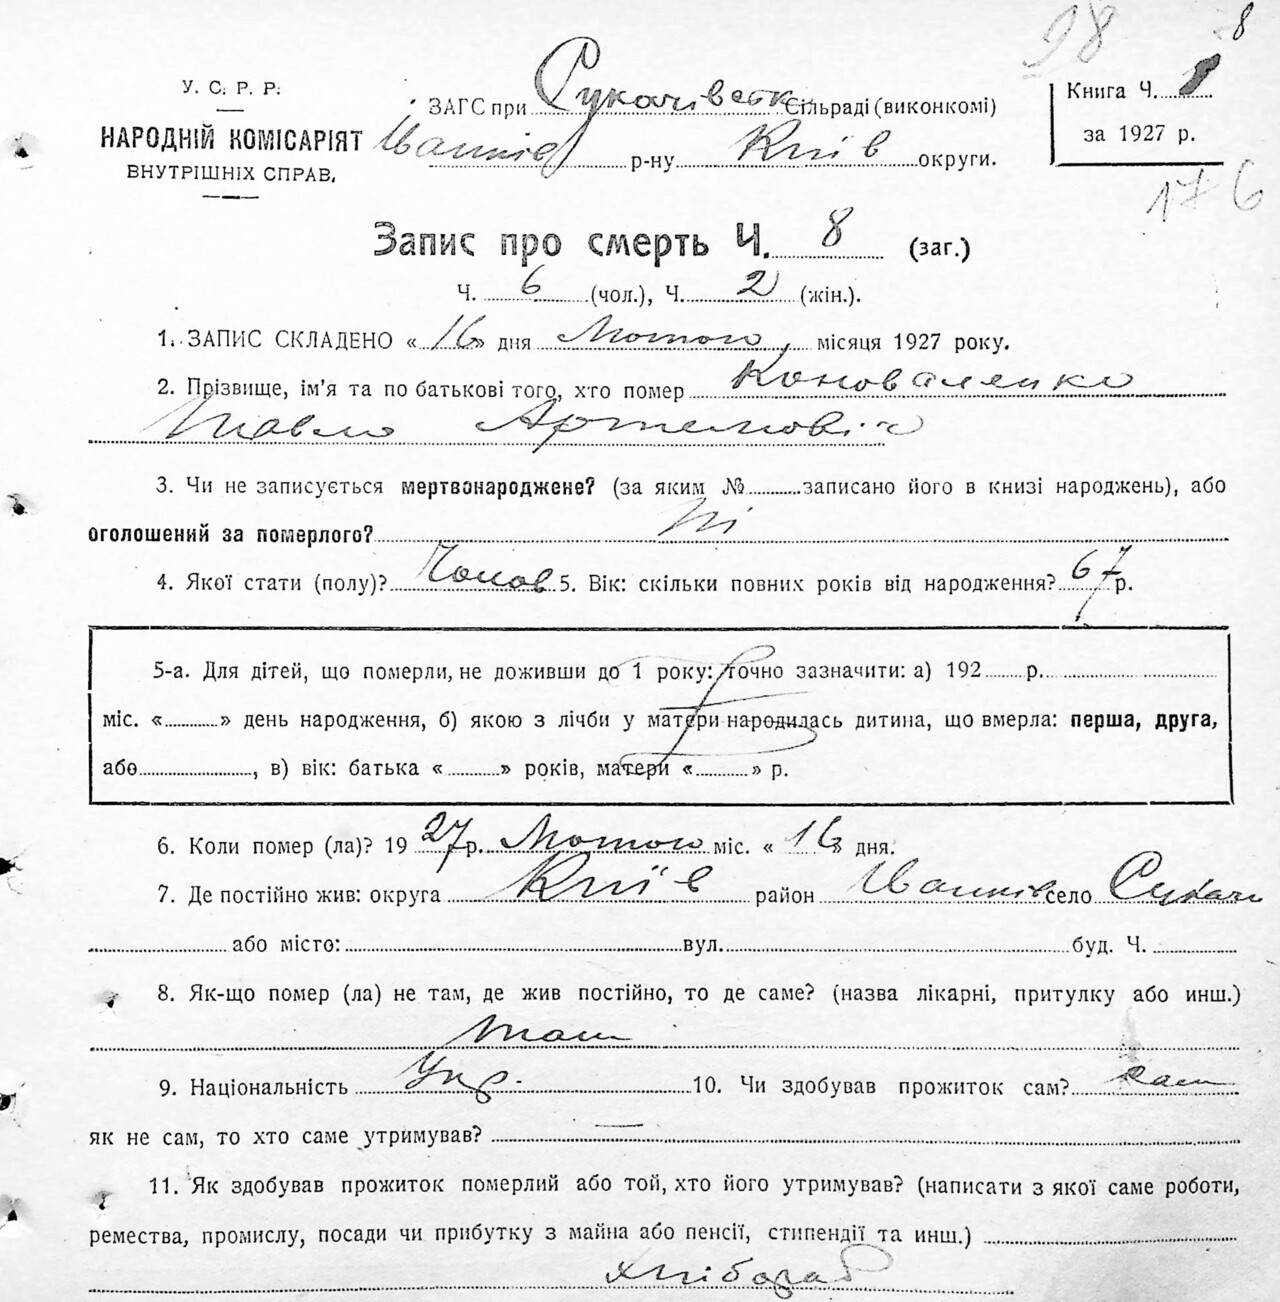 98 8
У. С. Р. Р.
НАРОДНІЙ КОМІСАРІЯТ
ВНУТРІШНІХ СПРАВ.
ЗАГС при Сукачівськ. Сільраді (виконкомі)
Іванків р-ну Київ округи.
Книга Ч.
за 1927 р.
176
Запис про смерть Ч. 8 (заг.)
Ч. 6 (чол.), Ч. 2 (жін.).
1. ЗАПИС СКЛАДЕНО «16» дня Лютого, місяця 1927 року.
2. Прізвище, ім'я та по батькові того, хто помер Коноваленко
Павло Артемовіч
3. Чи не записується мертвонароджене? (за яким № записано його в книзі народжень), або
оголошений за померлого? Ні
4. Якої стати (полу)? Чолов 5. Вік: скільки повних років від народження? 67 р.
5-а. Для дітей, що померли, не доживши до 1 року: точно зазначити: а) 192 р.
міс. « » день народження, б) якою з лічби у матери народилась дитина, що вмерла: перша, друга,
або , в) вік: батька « » років, матери « » р.
6. Коли помер (ла)? 19 27 р. Лютого міс. « 16 » дня.
7. Де постійно жив: округа Київ район Іванків село Сукачі
або місто: вул. буд. Ч.
8. Як-що помер (ла) не там, де жив постійно, то де саме? (назва лікарні, притулку або инш.)
там
9. Національність Укр. 10. Чи здобував прожиток сам? сам
як не сам, то хто саме утримував? —
11. Як здобував прожиток померлий або той, хто його утримував? (написати з якої саме роботи,
ремества, промислу, посади чи прибутку з майна або пенсії, стипендії та инш.)
хлібороб